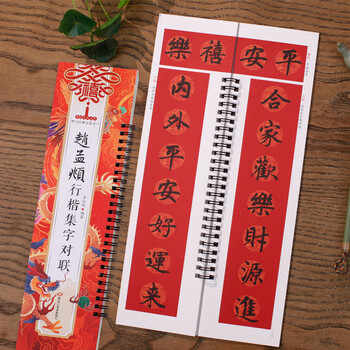 趙孟頫行楷集字对联
平安禧樂
合家歡樂財源進
内外平安好運来